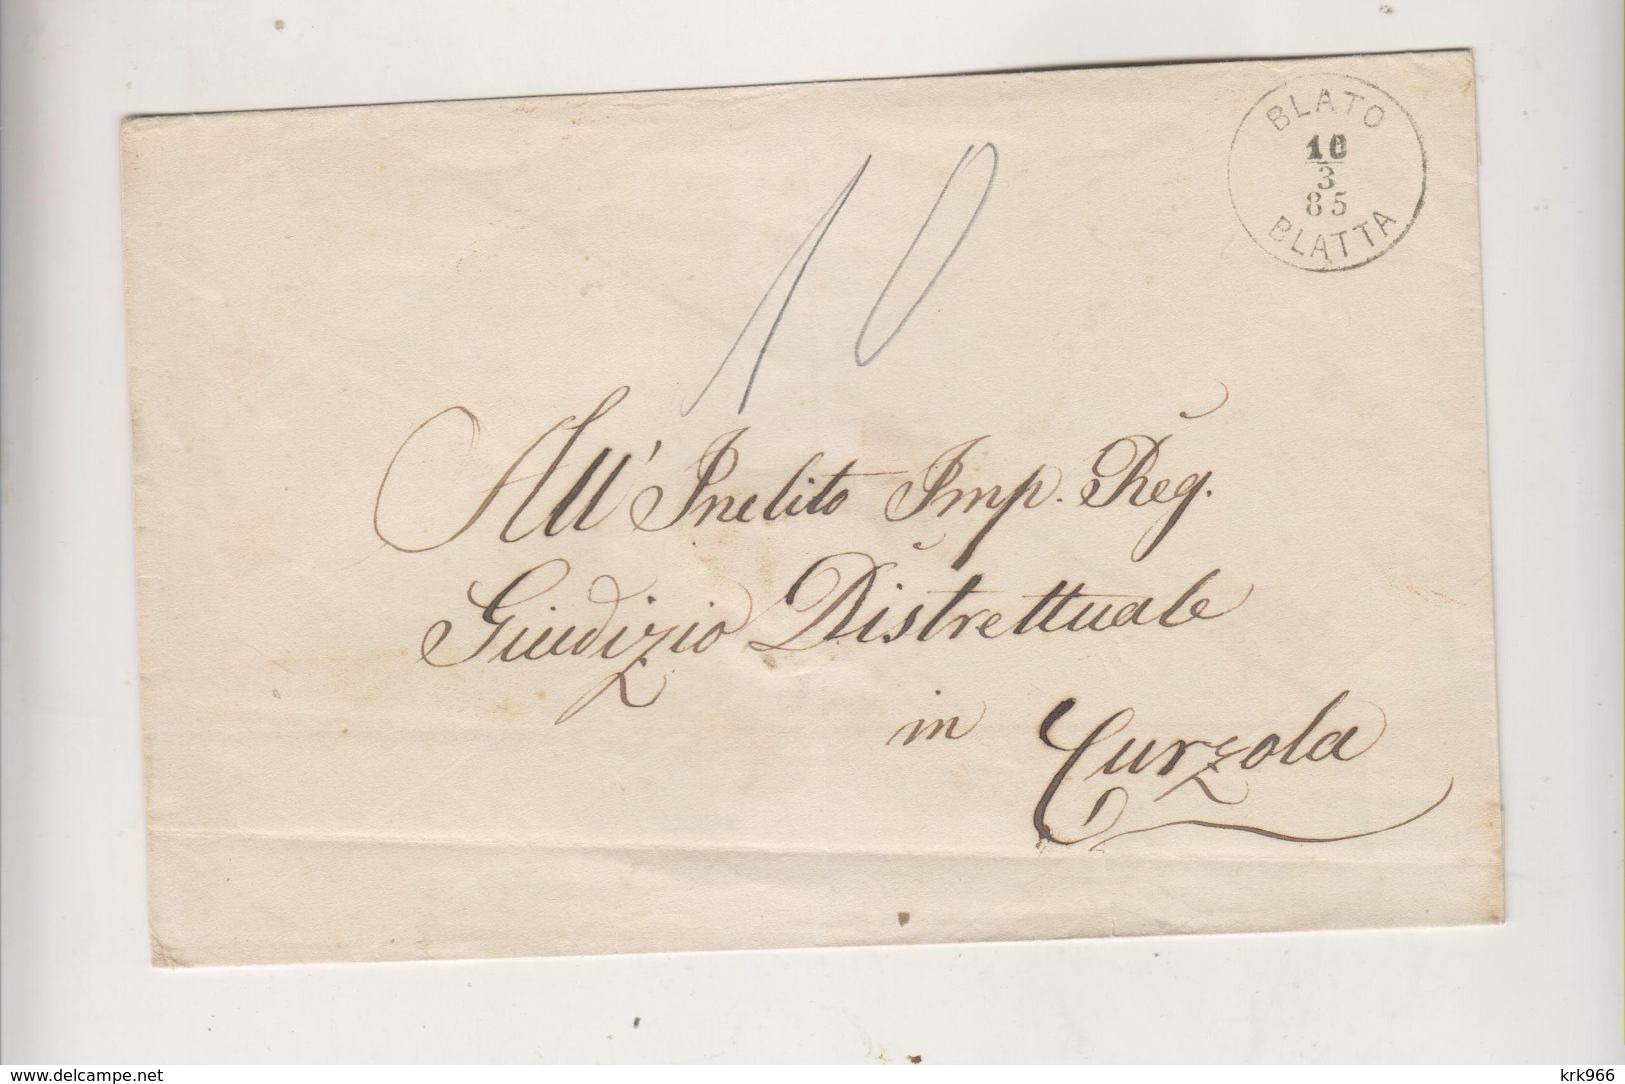 BLATO
10
3
85
BLATTA
10
All' Inclito Imp. Reg.
Giudizio Distrettuale
in Curzola
www.delcampe.net
krk966